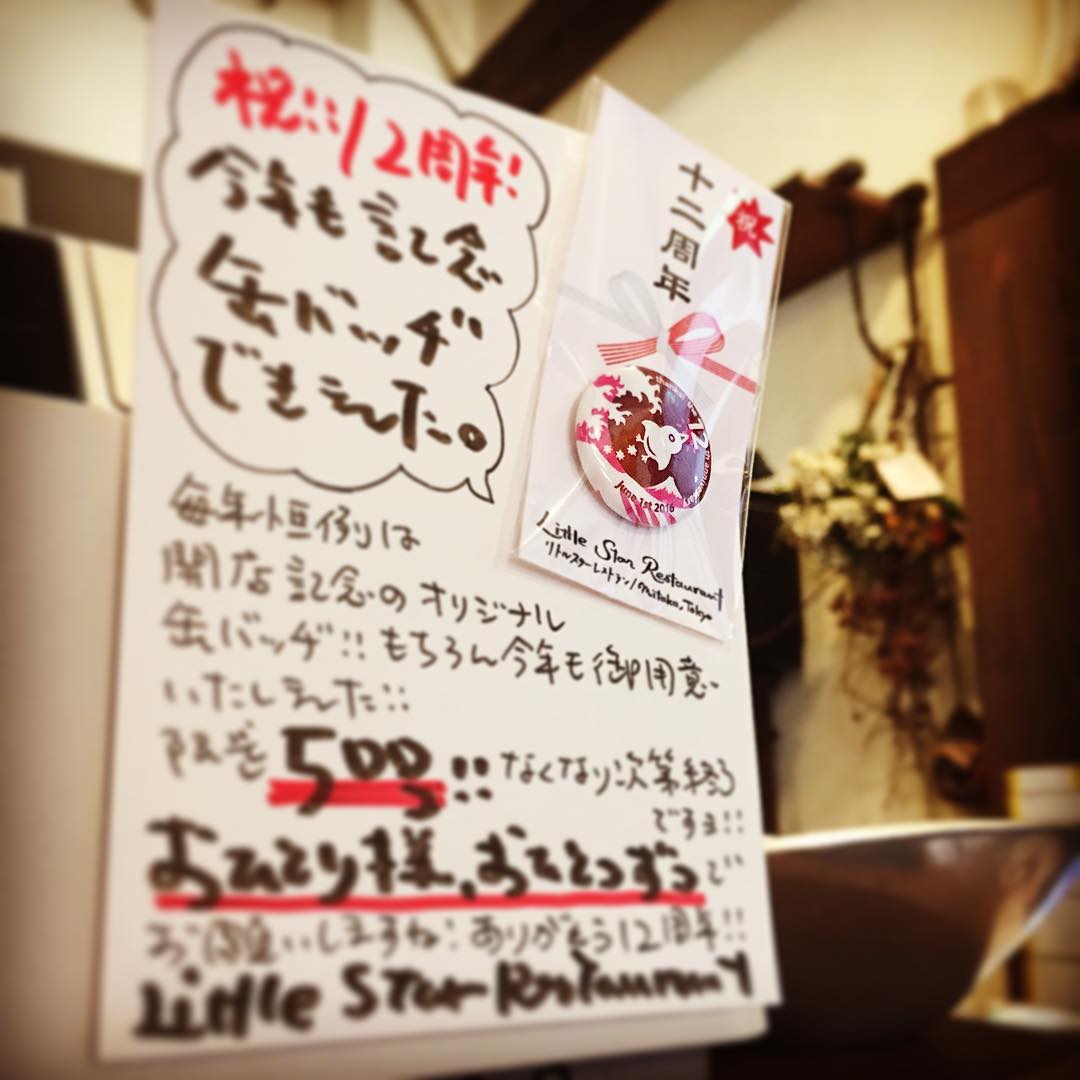 祝!!12周年!
今年も記念
缶バッヂ
できました。
毎年恒例は
開店記念のオリジナル
缶バッヂ!!もちろん今年も御用意
いたしました!!
限定500!!なくなり次第終了
ですョ!!
おひとり様、おひとつずつで
お願いしますね!ありがとう12周年!!
Little Star Restaurant
十二周年
祝
June 1st 2016
Little Star Restaurant
リトルスターレストラン/Mitaka, Tokyo